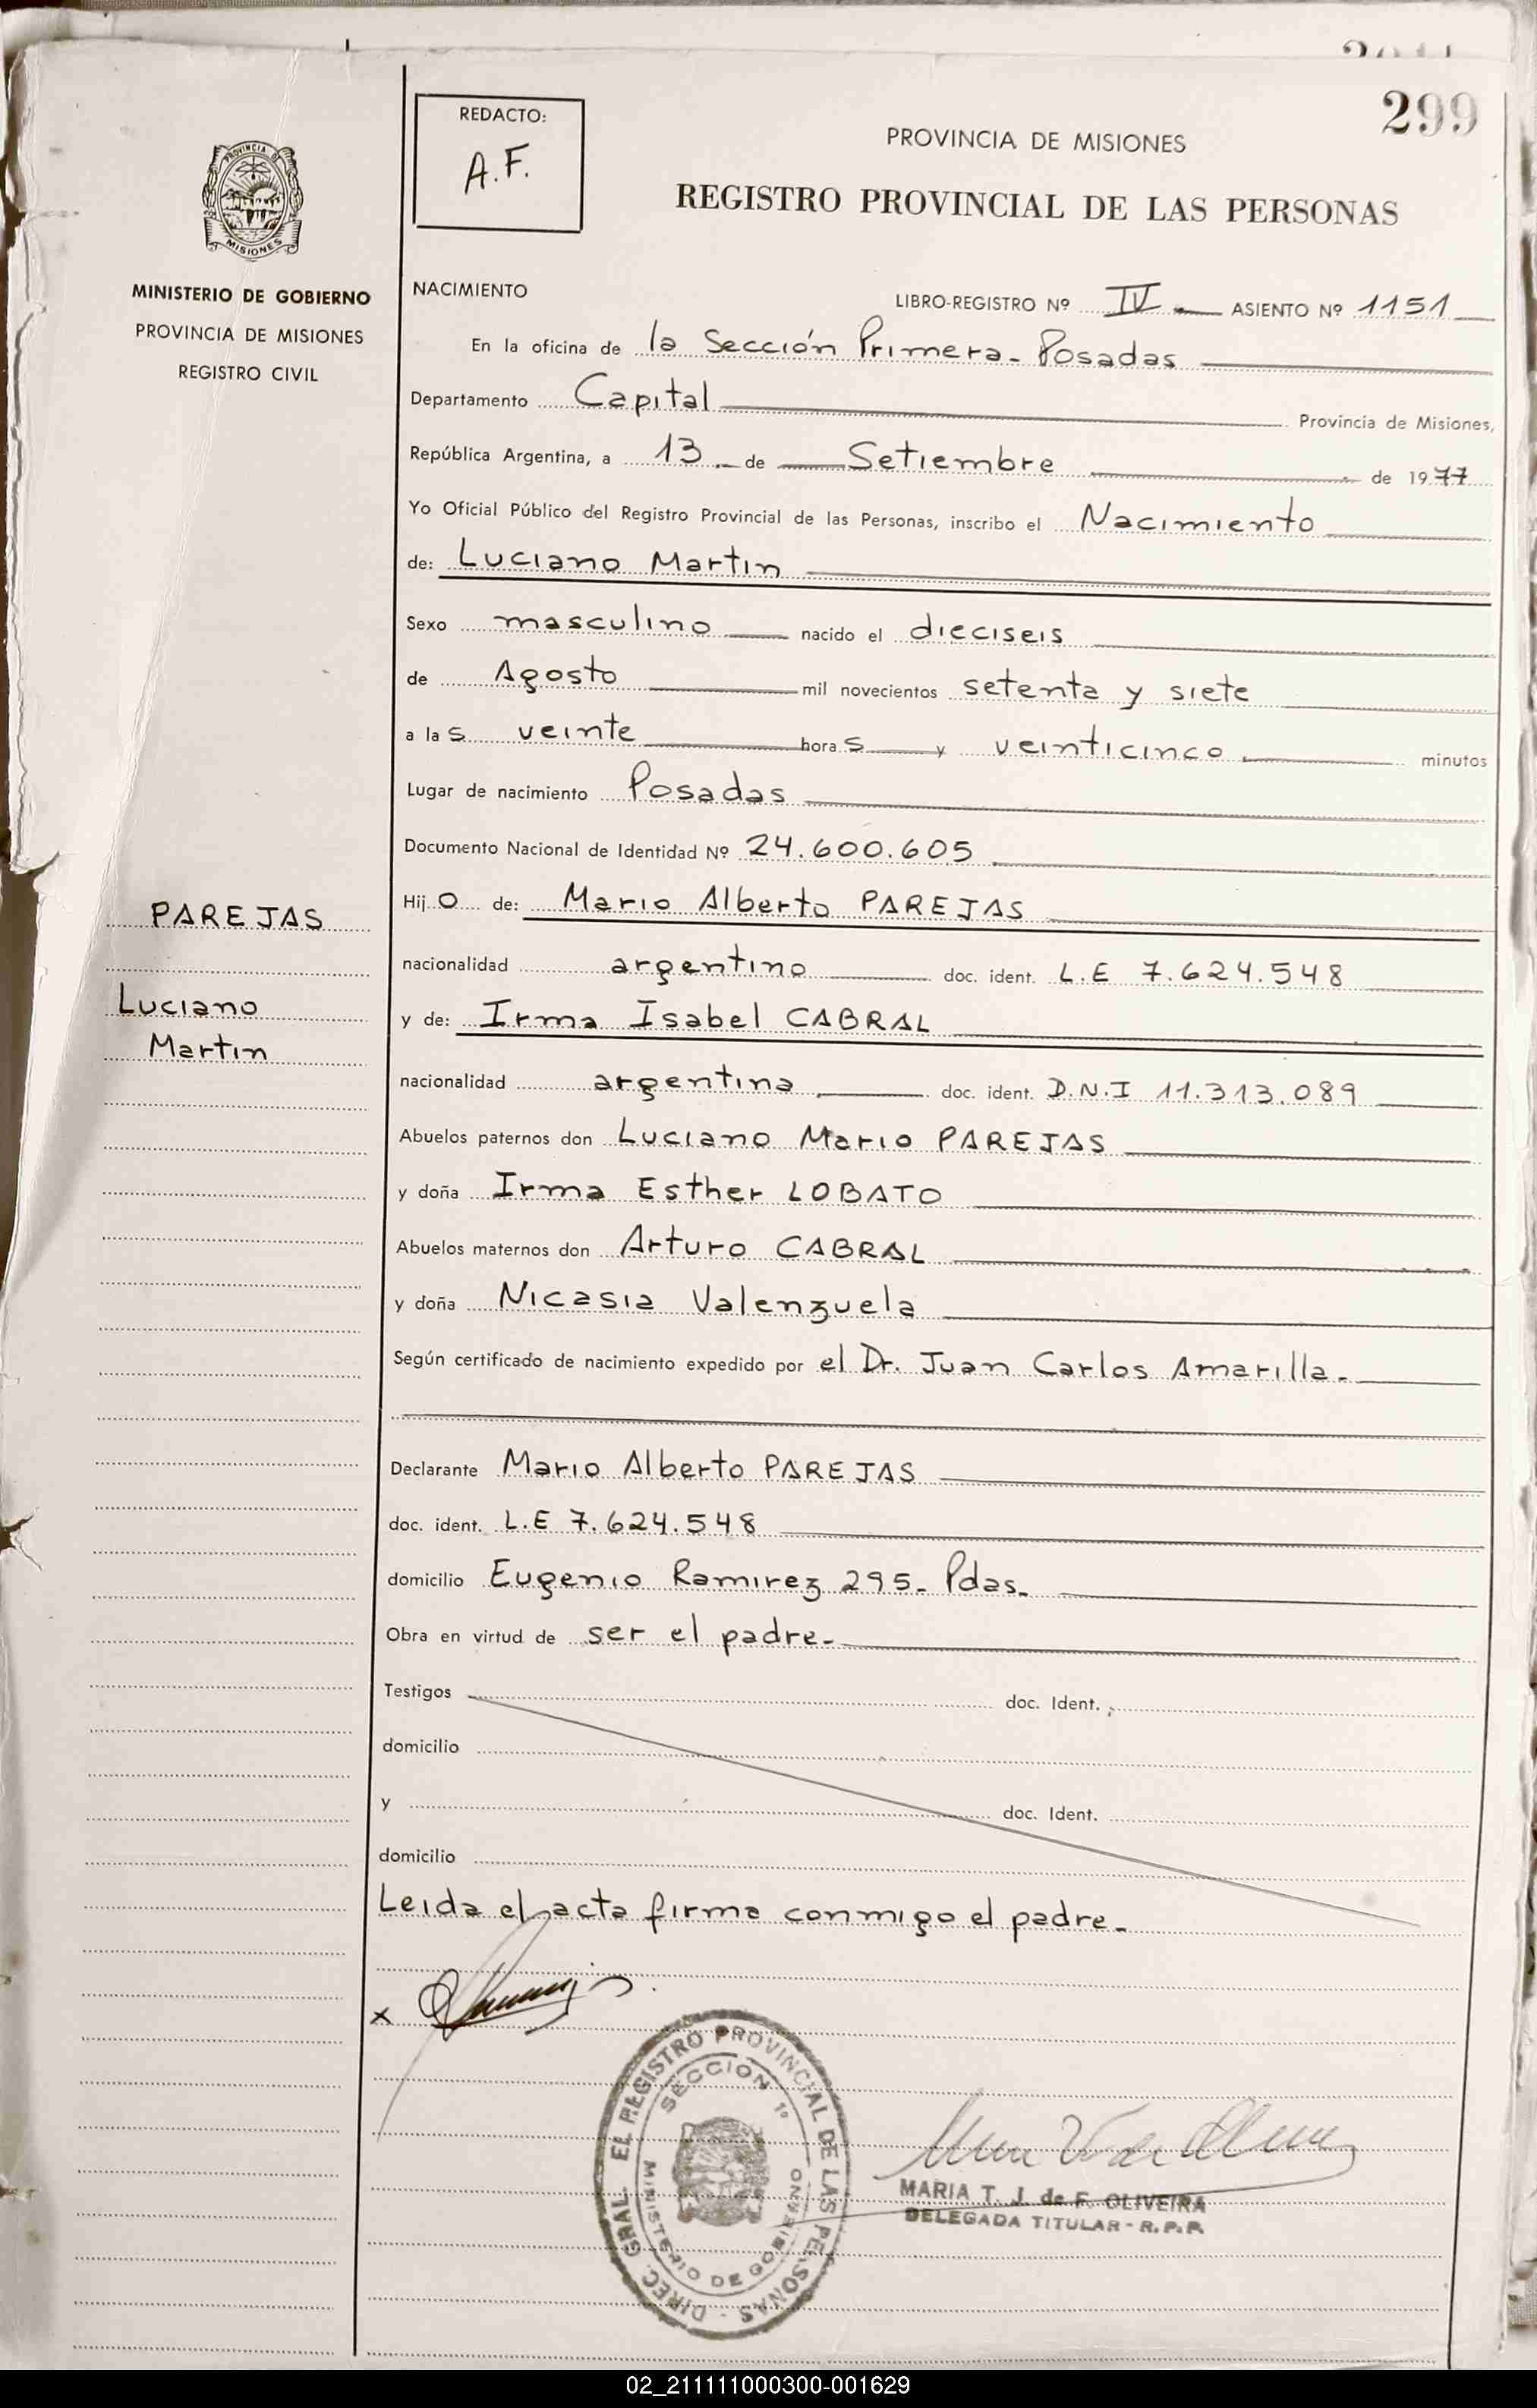 299
PROVINCIA DE
MISIONES
MINISTERIO DE GOBIERNO
PROVINCIA DE MISIONES
REGISTRO CIVIL
PAREJAS
Luciano
Martin
REDACTO:
A.F.
PROVINCIA DE MISIONES
REGISTRO PROVINCIAL DE LAS PERSONAS
NACIMIENTO
LIBRO-REGISTRO Nº IV ASIENTO Nº 1151
En la oficina de la Sección Primera - Posadas
Departamento Capital Provincia de Misiones,
República Argentina, a 13 de Setiembre de 1977
Yo Oficial Público del Registro Provincial de las Personas, inscribo el Nacimiento
de: Luciano Martin
Sexo masculino nacido el dieciseis
de Agosto mil novecientos setenta y siete
a las veinte horas y veinticinco minutos
Lugar de nacimiento Posadas
Documento Nacional de Identidad Nº 24.600.605
Hijo de: Mario Alberto PAREJAS
nacionalidad argentino doc. ident. L.E 7.624.548
y de: Irma Isabel CABRAL
nacionalidad argentina doc. ident. D.N.I 11.313.089
Abuelos paternos don Luciano Mario PAREJAS
y doña Irma Esther LOBATO
Abuelos maternos don Arturo CABRAL
y doña Nicasia Valenzuela
Según certificado de nacimiento expedido por el Dr. Juan Carlos Amarilla.
Declarante Mario Alberto PAREJAS
doc. ident. L.E 7.624.548
domicilio Eugenio Ramirez 295 - Pdas.
Obra en virtud de ser el padre.
Testigos doc. Ident.
domicilio
y doc. Ident.
domicilio
Leida el acta firma conmigo el padre.
x
DIREC. GRAL. EL REGISTRO PROVINCIAL DE LAS PERSONAS
SECCION 1º
MINISTERIO DE GOBIERNO
MARIA T. J. de F. OLIVEIRA
DELEGADA TITULAR - R. P. P.
02_211111000300-001629